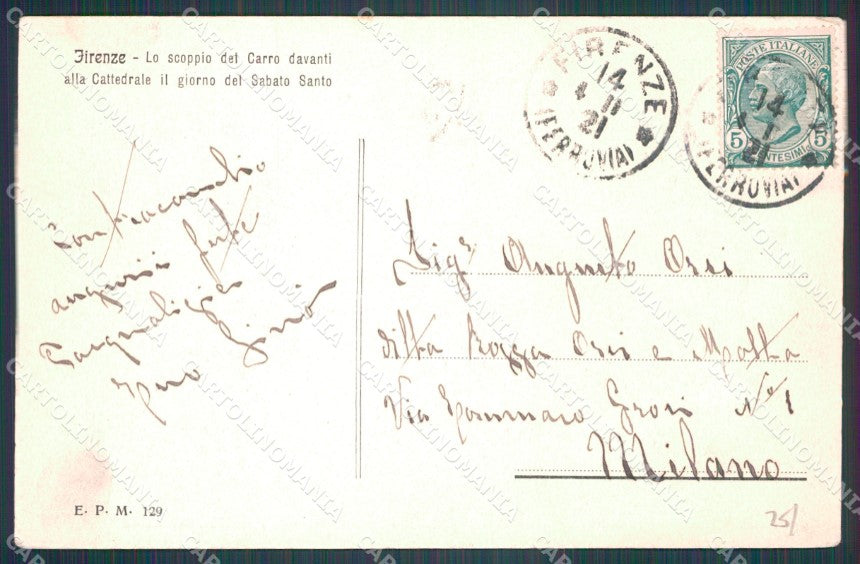 Firenze - Lo scoppio del Carro davanti
alla Cattedrale il giorno del Sabato Santo
FIRENZE
14
4 11
21
(FERROVIA)
POSTE ITALIANE
5 CENTESIMI 5
14
21
(FERROVIA)
Contraccambio
auguri feste
Pasquali
Gino
Sigr Augusto Orsi
ditta Orsi e Motta
Via Tommaso Grossi No 1
Milano
E. P. M. 129
25/
CARTOLINOMANIA